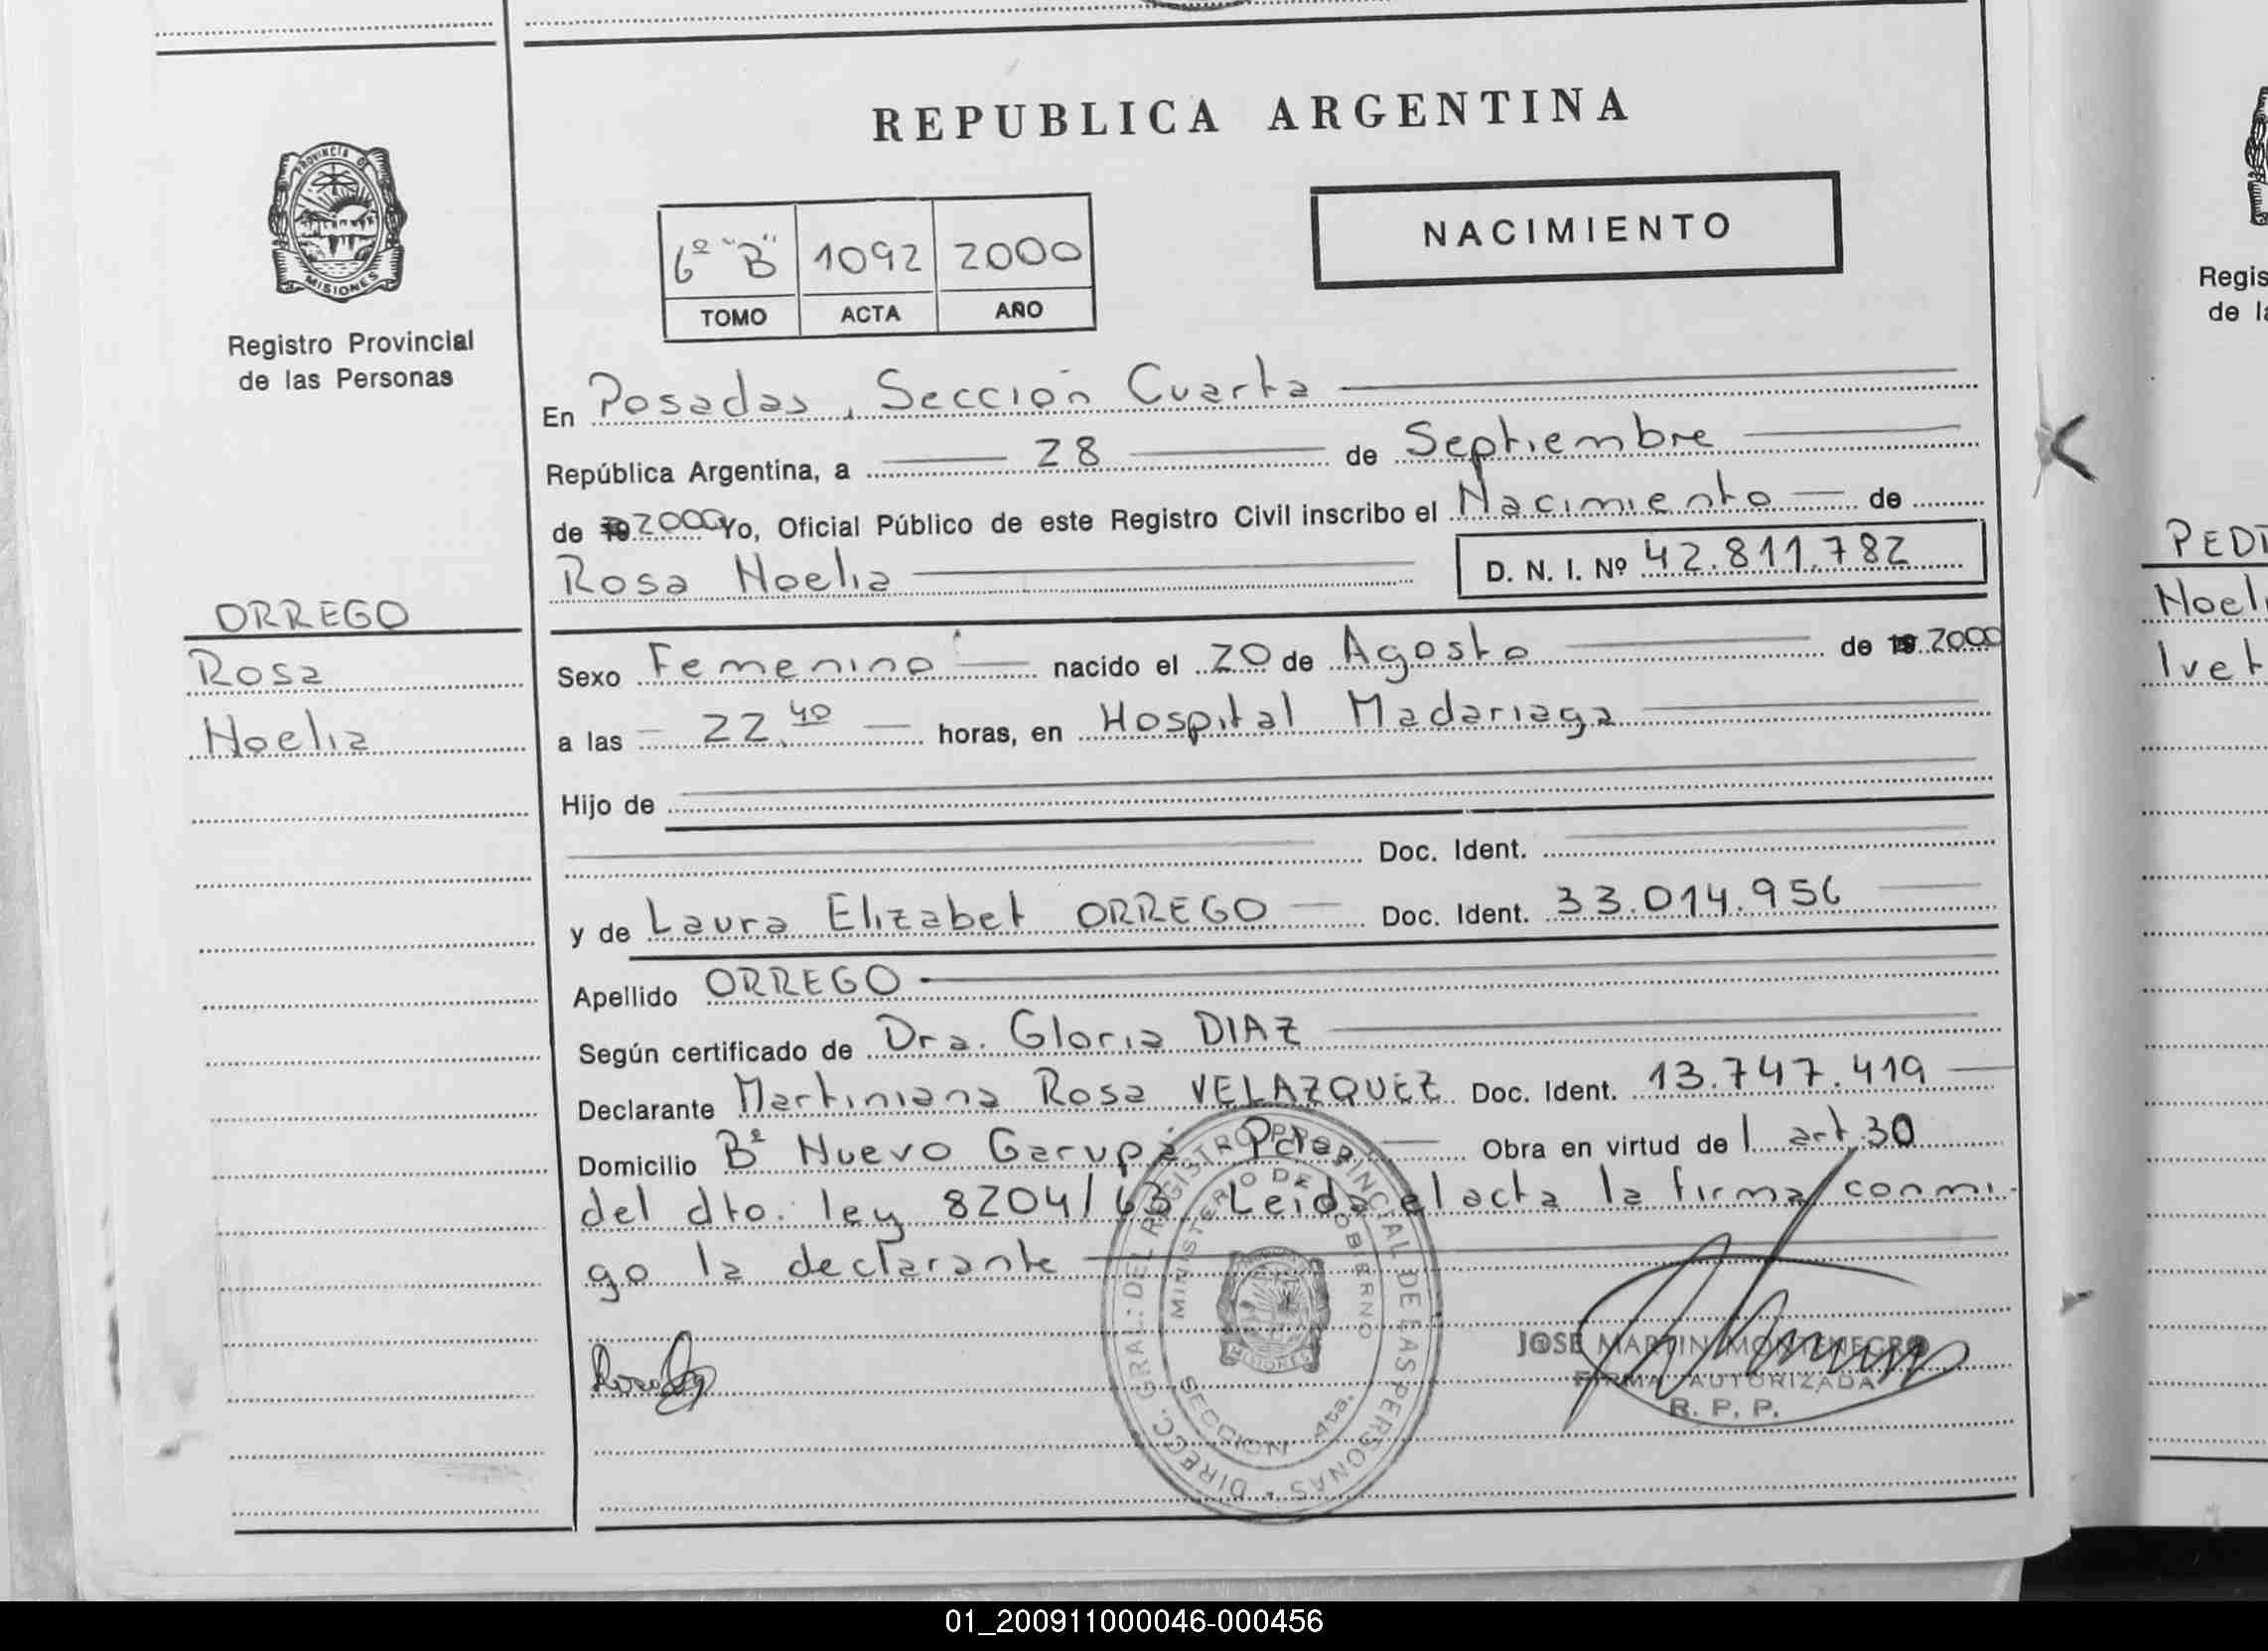 REPUBLICA ARGENTINA
PROVINCIA DE
MISIONES
Registro Provincial
de las Personas
6º "B" 1092 2000
TOMO ACTA AÑO
NACIMIENTO
En Posadas, Sección Cuarta
República Argentina, a 28 de Septiembre
de 2000 Yo, Oficial Público de este Registro Civil inscribo el Nacimiento de
Rosa Noelia D. N. I. Nº 42.811.782
ORREGO
Rosa
Noelia
Sexo Femenino nacido el 20 de Agosto de 2000
a las 22,40 horas, en Hospital Madariaga
Hijo de
Doc. Ident.
y de Laura Elizabet ORREGO Doc. Ident. 33.014.956
Apellido ORREGO
Según certificado de Dra. Gloria DIAZ
Declarante Martiniana Rosa VELAZQUEZ Doc. Ident. 13.747.419
Domicilio Bº Nuevo Garupá Pdas Obra en virtud del art. 30
del dto. ley 8204/63 Leida el acta la firma conmi-
go la declarante
DIRECC. GRAL. DEL REGISTRO PROVINCIAL DE LAS PERSONAS
MINISTERIO DE GOBIERNO
MISIONES
SECCION 4ta.
JOSE MARTIN MONTENEGRO
FIRMA AUTORIZADA
R. P. P.
Regis
de la
PEDI
Noeli
Ivet
01_200911000046-000456